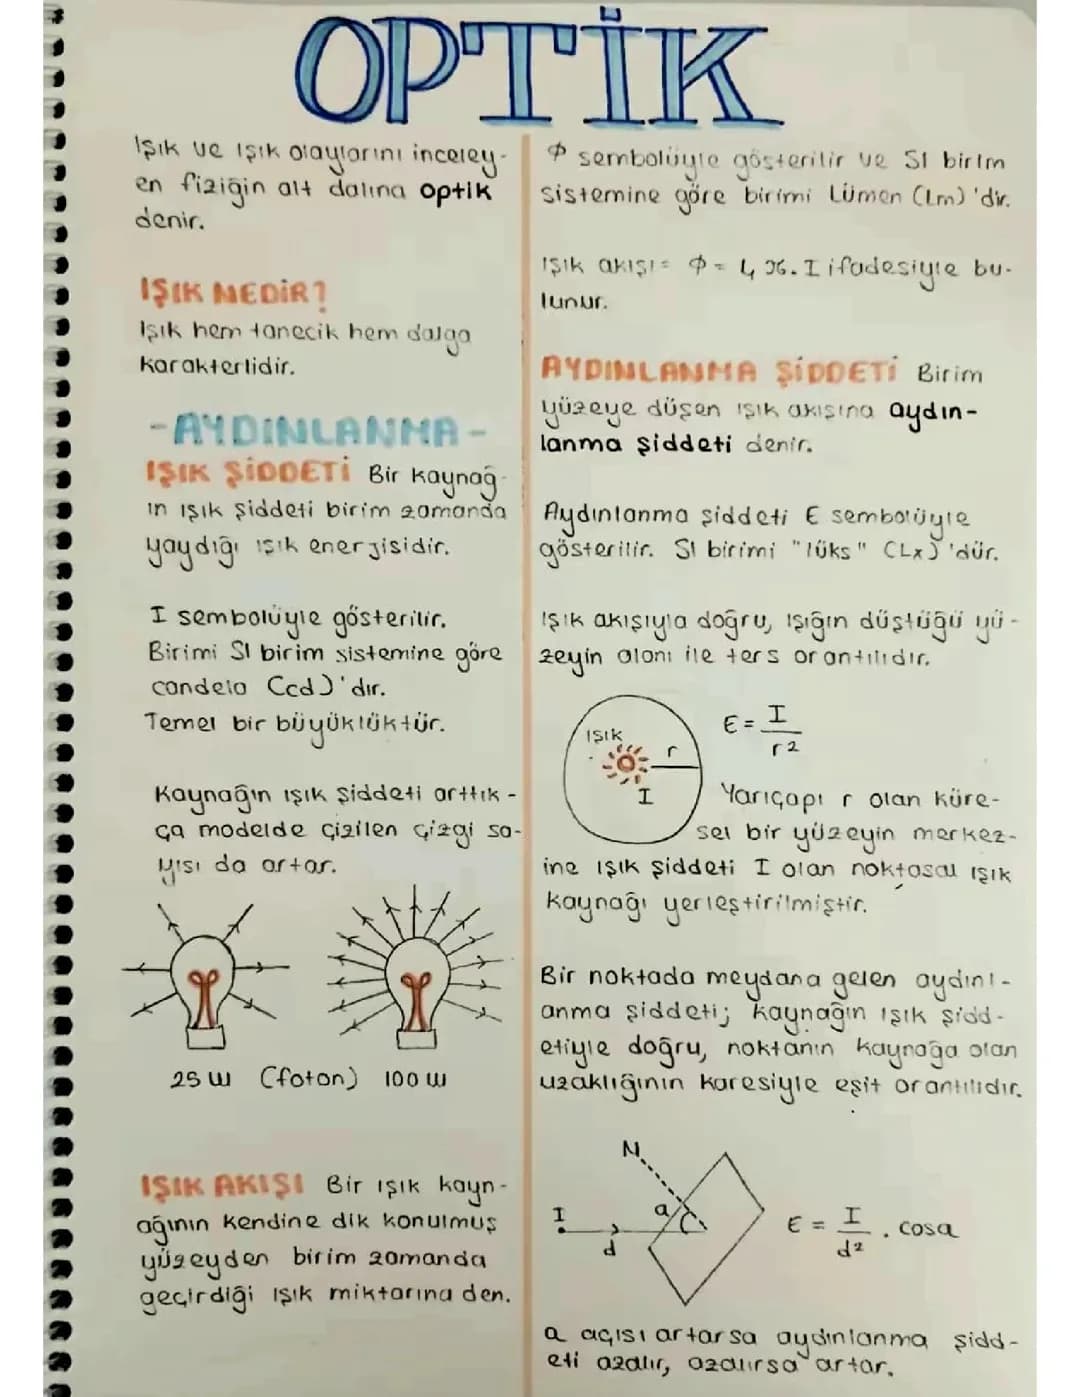 OPTİK
Işık ve ışık olaylarını inceley-
en fiziğin alt dalına optik
denir.
IŞIK NEDİR?
Işık hem tanecik hem dalga
karakterlidir.
-AYDINLANMA-
IŞIK ŞİDDETİ Bir kaynağ-
ın ışık şiddeti birim zamanda
yaydığı ışık enerjisidir.
I sembolüyle gösterilir.
Birimi SI birim sistemine göre
candela (cd)'dır.
Temel bir büyüklüktür.
Kaynağın ışık şiddeti arttık-
ça modelde çizilen çizgi sa-
yısı da artar.
25 W (foton) 100 W
IŞIK AKIŞI Bir ışık kayn-
ağının kendine dik konulmuş
yüzeyden birim zamanda
geçirdiği ışık miktarına den.
Φ sembolüyle gösterilir ve SI birim
sistemine göre birimi Lümen (Lm)'dir.
Işık akışı= Φ = 4π.I ifadesiyle bu-
lunur.
AYDINLANMA ŞİDDETİ Birim
yüzeye düşen ışık akışına aydın-
lanma şiddeti denir.
Aydınlanma şiddeti E sembolüyle
gösterilir. SI birimi "lüks" (Lx)'dür.
Işık akışıyla doğru, ışığın düştüğü yü-
zeyin alanı ile ters orantılıdır.
ışık
r
I
E = I
r2
Yarıçapı r olan küre-
sel bir yüzeyin merkez-
ine ışık şiddeti I olan noktasal ışık
kaynağı yerleştirilmiştir.
Bir noktada meydana gelen aydınl-
anma şiddeti; kaynağın ışık şidd-
etiyle doğru, noktanın kaynağa olan
uzaklığının karesiyle eşit orantılıdır.
N
I
a
d
E = I . cosa
d2
a açısı artarsa aydınlanma şidd-
eti azalır, azalırsa artar.